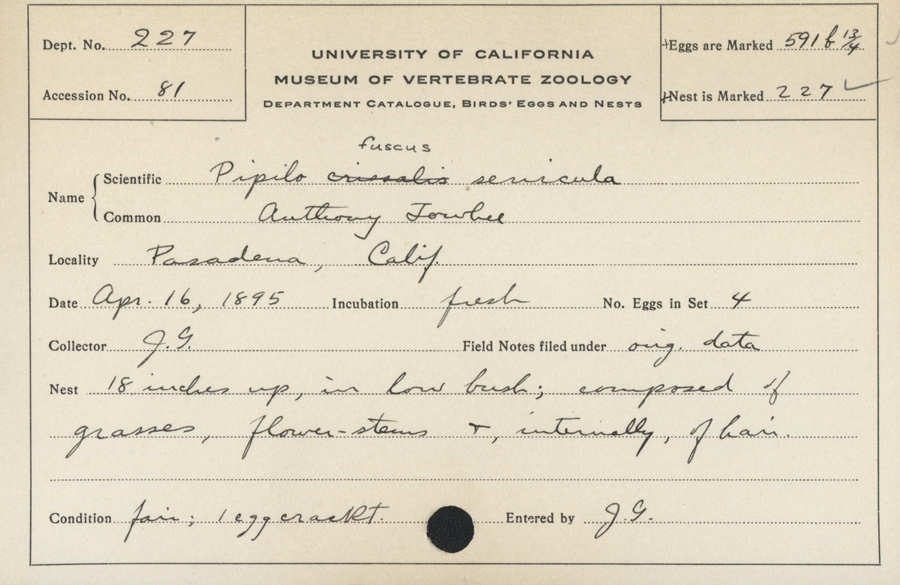 Dept. No. 227
Accession No. 81
UNIVERSITY OF CALIFORNIA
MUSEUM OF VERTEBRATE ZOOLOGY
DEPARTMENT CATALOGUE, BIRDS' EGGS AND NESTS
Eggs are Marked 591b 13/4
Nest is Marked 227 ✓
fuscus
Name Scientific Pipilo crissalis senicula
Common Anthony Towhee
Locality Pasadena, Calif.
Date Apr. 16, 1895 Incubation fresh No. Eggs in Set 4
Collector J.G. Field Notes filed under orig. data
Nest 18 inches up, in low bush; composed of
grasses, flower-stems +, internally, of hair.
Condition fair; 1 egg crackt. Entered by J.G.